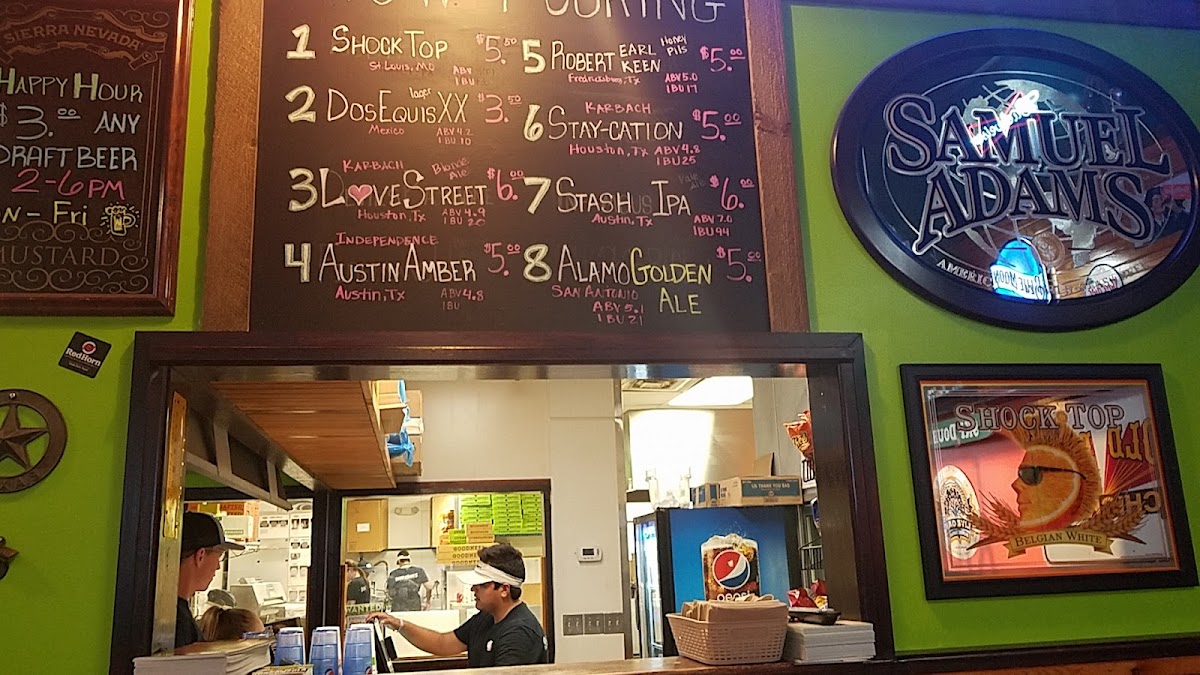 SIERRA NEVADA
HAPPY HOUR
$3.00 ANY
DRAFT BEER
2-6PM
N - FRI
MUSTARD
POURING
1 SHOCK TOP $5.50
ST. LOUIS, MO ABV
IBU
2 DOSEQUIS XX lager $3.50
Mexico ABV 4.2
IBU 10
KARBACH Blonde Ale
3 LOVE STREET $6.00
Houston, Tx ABV 4.9
IBU 20
INDEPENDENCE
4 AUSTIN AMBER $5.00
AUSTIN, TX ABV 4.8
IBU
5 ROBERT EARL KEEN Honey Pils $5.00
Fredricksburg, Tx ABV 5.0
IBU 17
KARBACH
6 STAY-CATION $5.00
HOUSTON, TX ABV 4.8
IBU 25
7 STASH IPA $6.00
AUSTIN, TX ABV 7.0
IBU 94
8 ALAMO GOLDEN ALE $5.00
SAN ANTONIO
ABV 5.1
IBU 21
SAMUEL
ADAMS
AMERIC
BLUE MOON
RedHorn
SHOCK TOP
BELGIAN WHITE
WANTED
pepsi